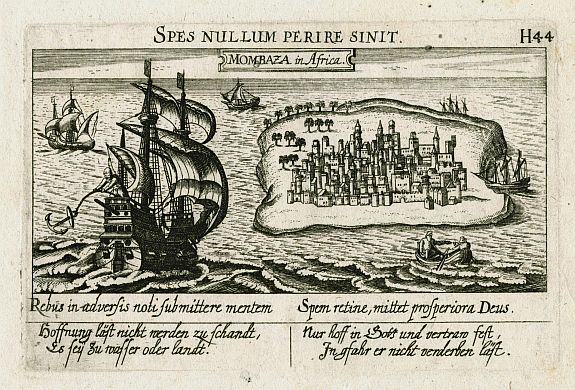 SPES NULLUM PERIRE SINIT.
H44
MOMBAZA in Africa.
Rebus in adversis noli submittere mentem
Spem retine, mittet prosperiora Deus.
Hoffnung läst nicht werden zu schandt,
Es sey zu wasser oder landt.
Nur hoff in Gott und vertraw fest,
In gfahr er nicht verderben läst.